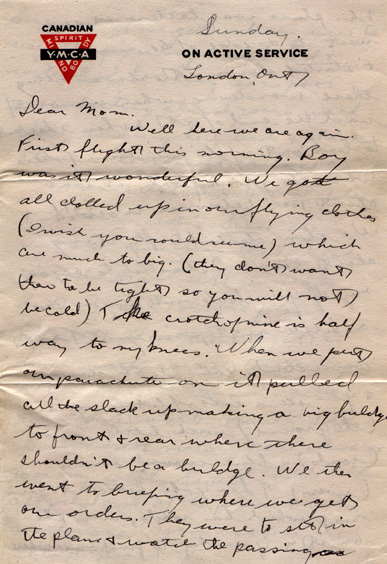 CANADIAN
SPIRIT
Y·M·C·A
MIND BODY
Sunday.
ON ACTIVE SERVICE
London, Ont
Dear Mom.
Well here we are again.
First flight this morning. Boy
was it wonderful. We got
all clolled up in our flying clothes
(I wish you could see me) which
are much to big. (they don't want
them to be tight so you will not
be cold) The crotch of mine is half
way to my knees. When we put
our parachute on it pulled
all the slack up making a big buldge
to front & rear where there
shouldn't be a buldge. We then
went to briefing where we get
our orders. They were to sit in
the plane & watch the passing